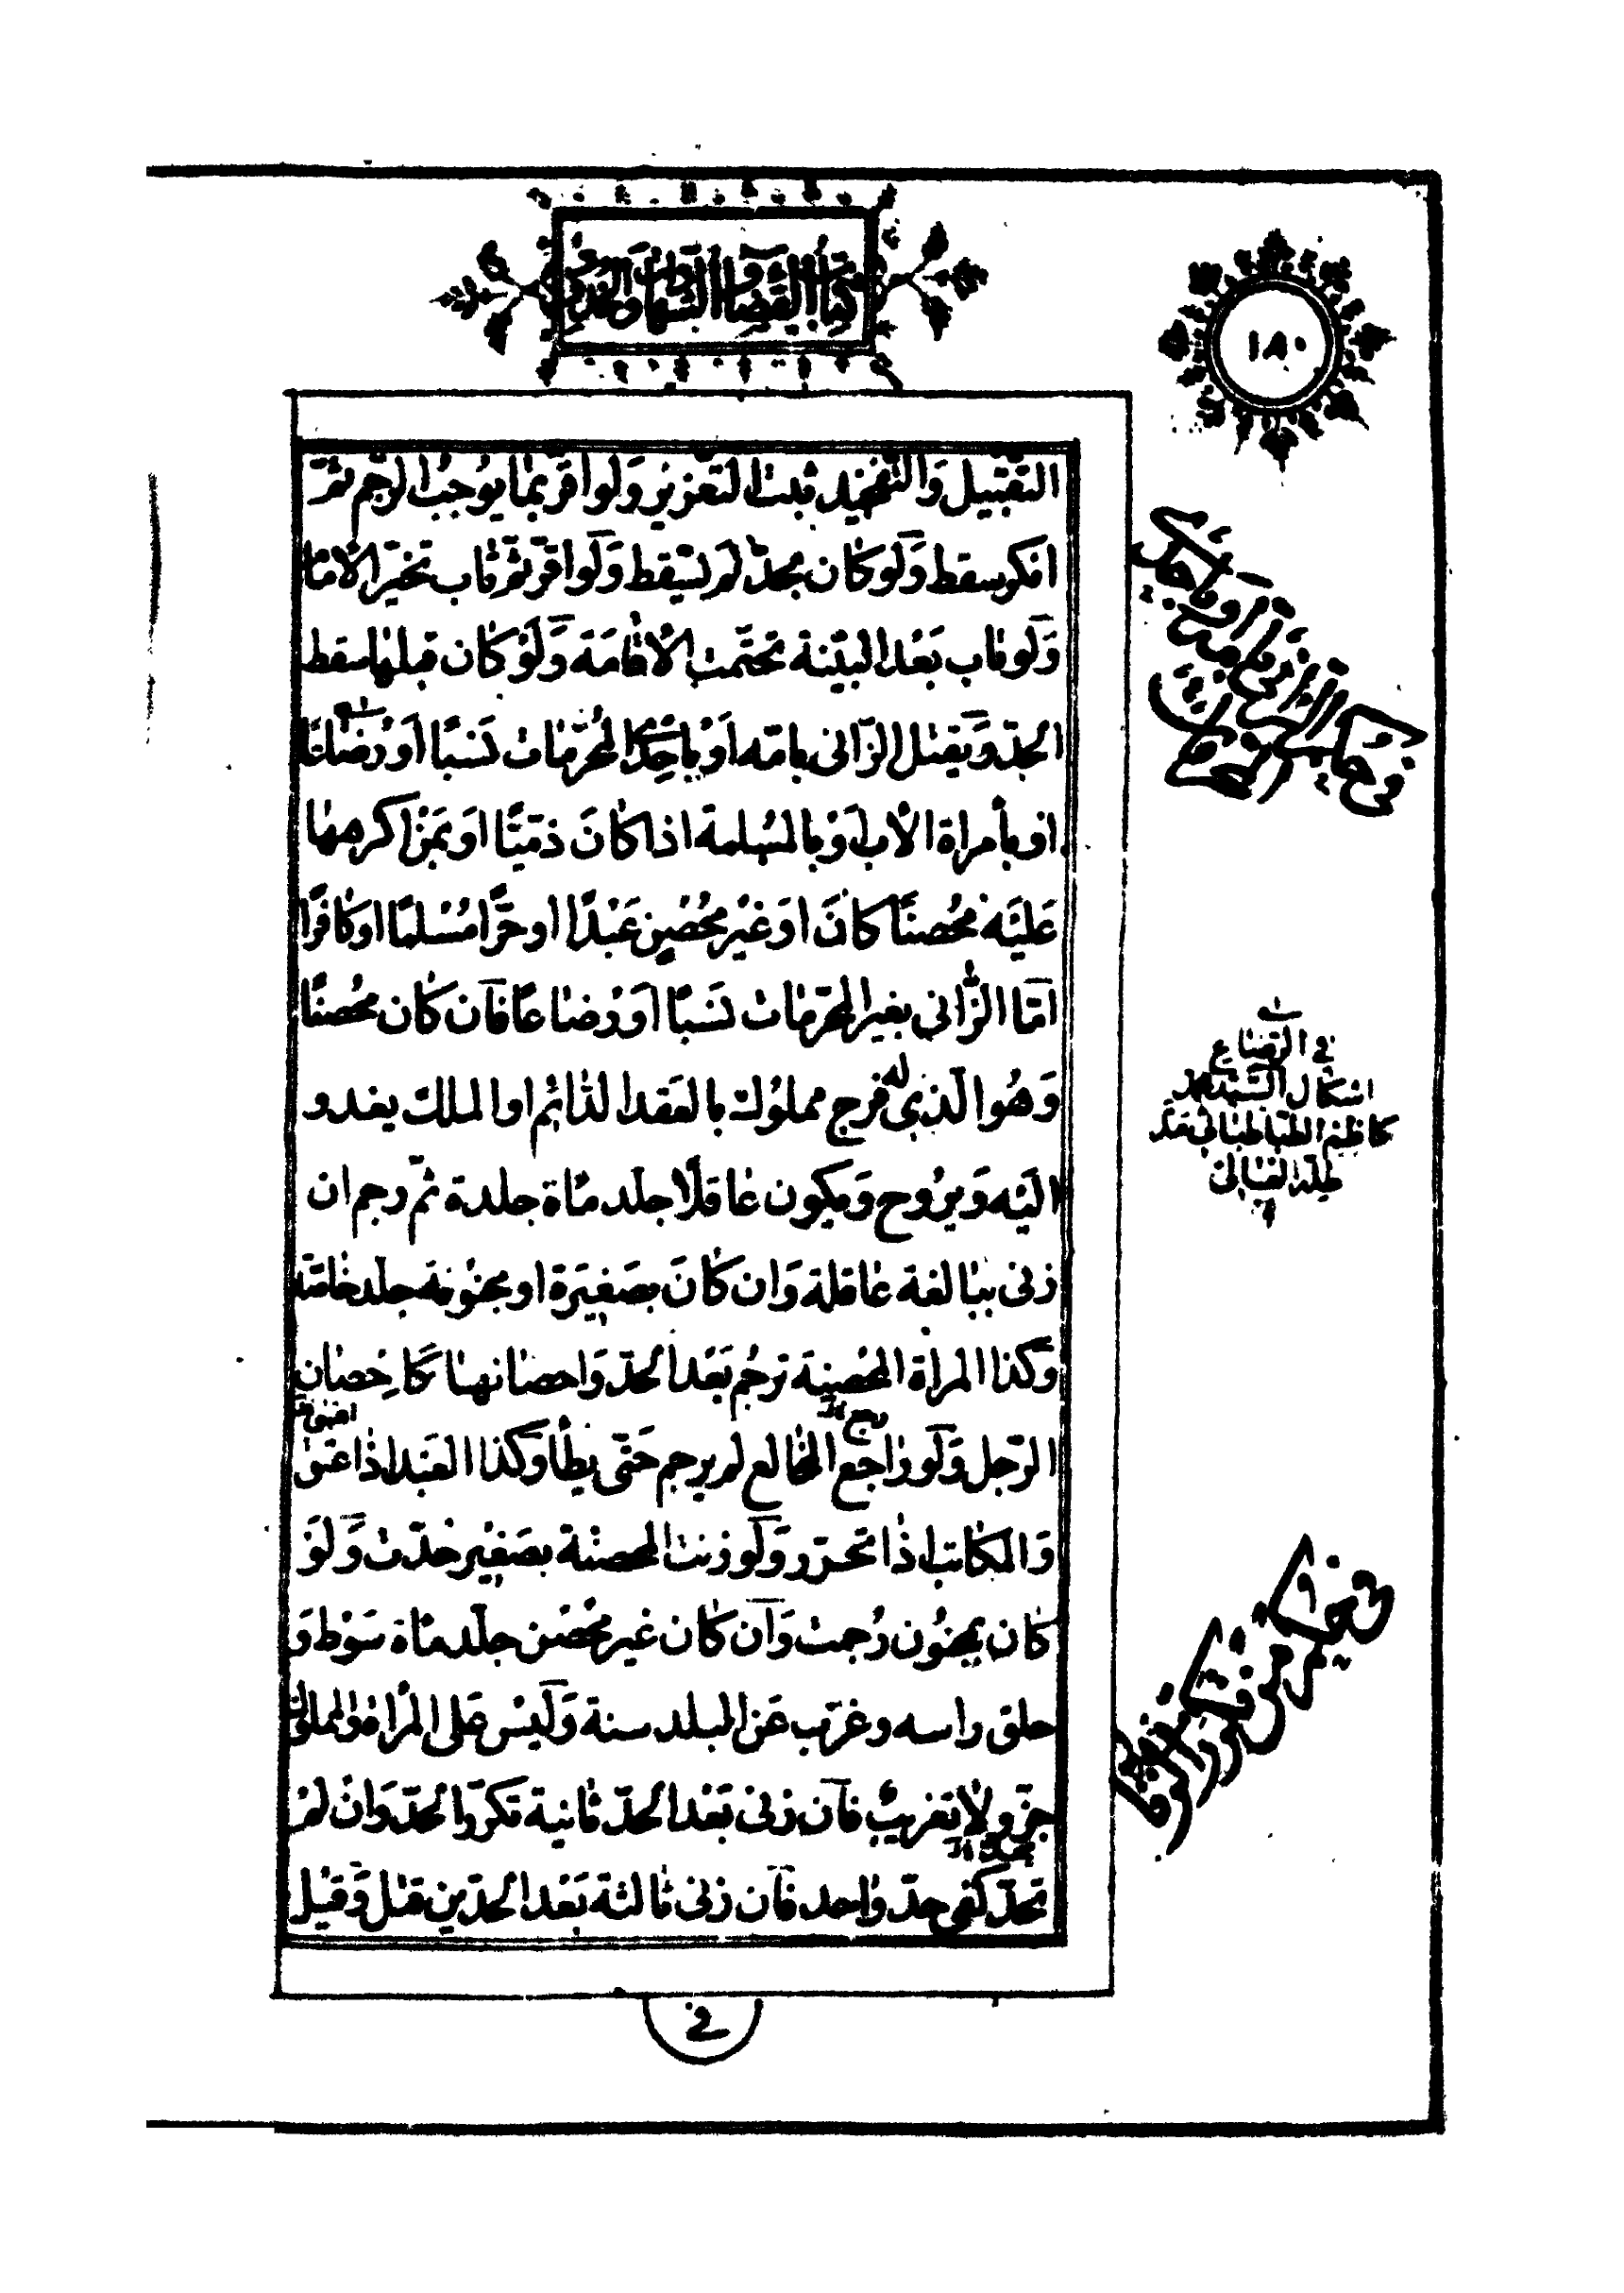 كتاب القضاء والشهادات والحدود
١٨٠
التقبيل والتفخيذ ثبت التعزير ولو اقر بما يوجب الرجم ثم
انكر سقط ولو كان بحد لم يسقط ولو اقر ثم تاب تخير الامام
ولو تاب بعد البينة تحتمت الاقامة ولو كان قبلها سقط
الحد ويقتل الزاني بامه او باحد المحرمات نسبا او رضاعا
او بامراة الاب او بالمسلمة اذا كان ذميا او بمن اكرهها
عليه محصنا كان او غير محصن عبدا او حرا مسلما او كافرا
اما الزاني بغير المحرمات نسبا او رضاعا فان كان محصنا
وهو الذي له فرج مملوك بالعقد الدائم او الملك يغدو
اليه ويروح ويكون عاقلا جلد مائة جلدة ثم رجم ان
زنى ببالغة عاقلة وان كان بصغيرة او مجنونة جلد خاصة
وكذا المراة المحصنة ترجم بعد الحد واحصانها كاحصان
الرجل ولو راجع المخالع لم يرجم حتى يطأ وكذا العبد اذا عتق
والمكاتب اذا تحرر ولو زنت المحصنة بصغير حدت ولو
كان بمجنون رجمت وان كان غير محصن جلد مائة سوط و
حلق راسه وغرب عن البلد سنة وليس على المرأة والمملوك
جز ولا تغريب فان زنى بعد الحد ثانية تكرر الحد وان لم
يحد كفى حد واحد فان زنى ثالثة بعد الحدين قتل وقيل
في الرضاع
اشكال السيد محمد
كاظم الطباطبائي مد
ظله العالي
في